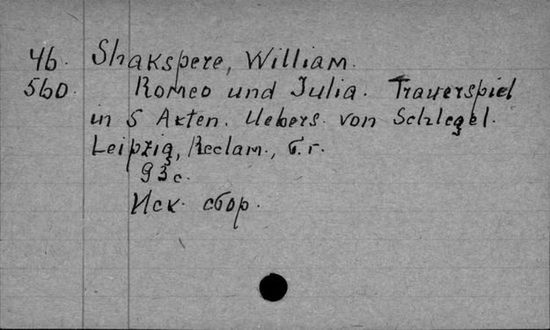 46. Shakspere, William.
560. Romeo und Julia. Trauerspiel
in 5 Akten. Uebers. von Schlegel.
Leipzig, Reclam., б.г.
93 с.
Иск. сбор.